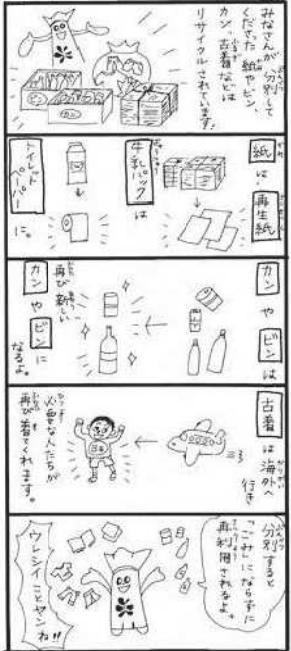 みなさんが分別して
くださった紙やビン、
カン、古着などは
リサイクルされています。
カン
紙は、
再生紙
牛乳パックは
トイレット
ペーパー
に。
カンやビンは
再び新しい
カンやビンに
なるよ。
古着は海外へ
行き
必要な人たちが
再び着てくれます。
分別すると
「ごみ」にならずに
再利用されるよ。
ウレシイことヤンね!!